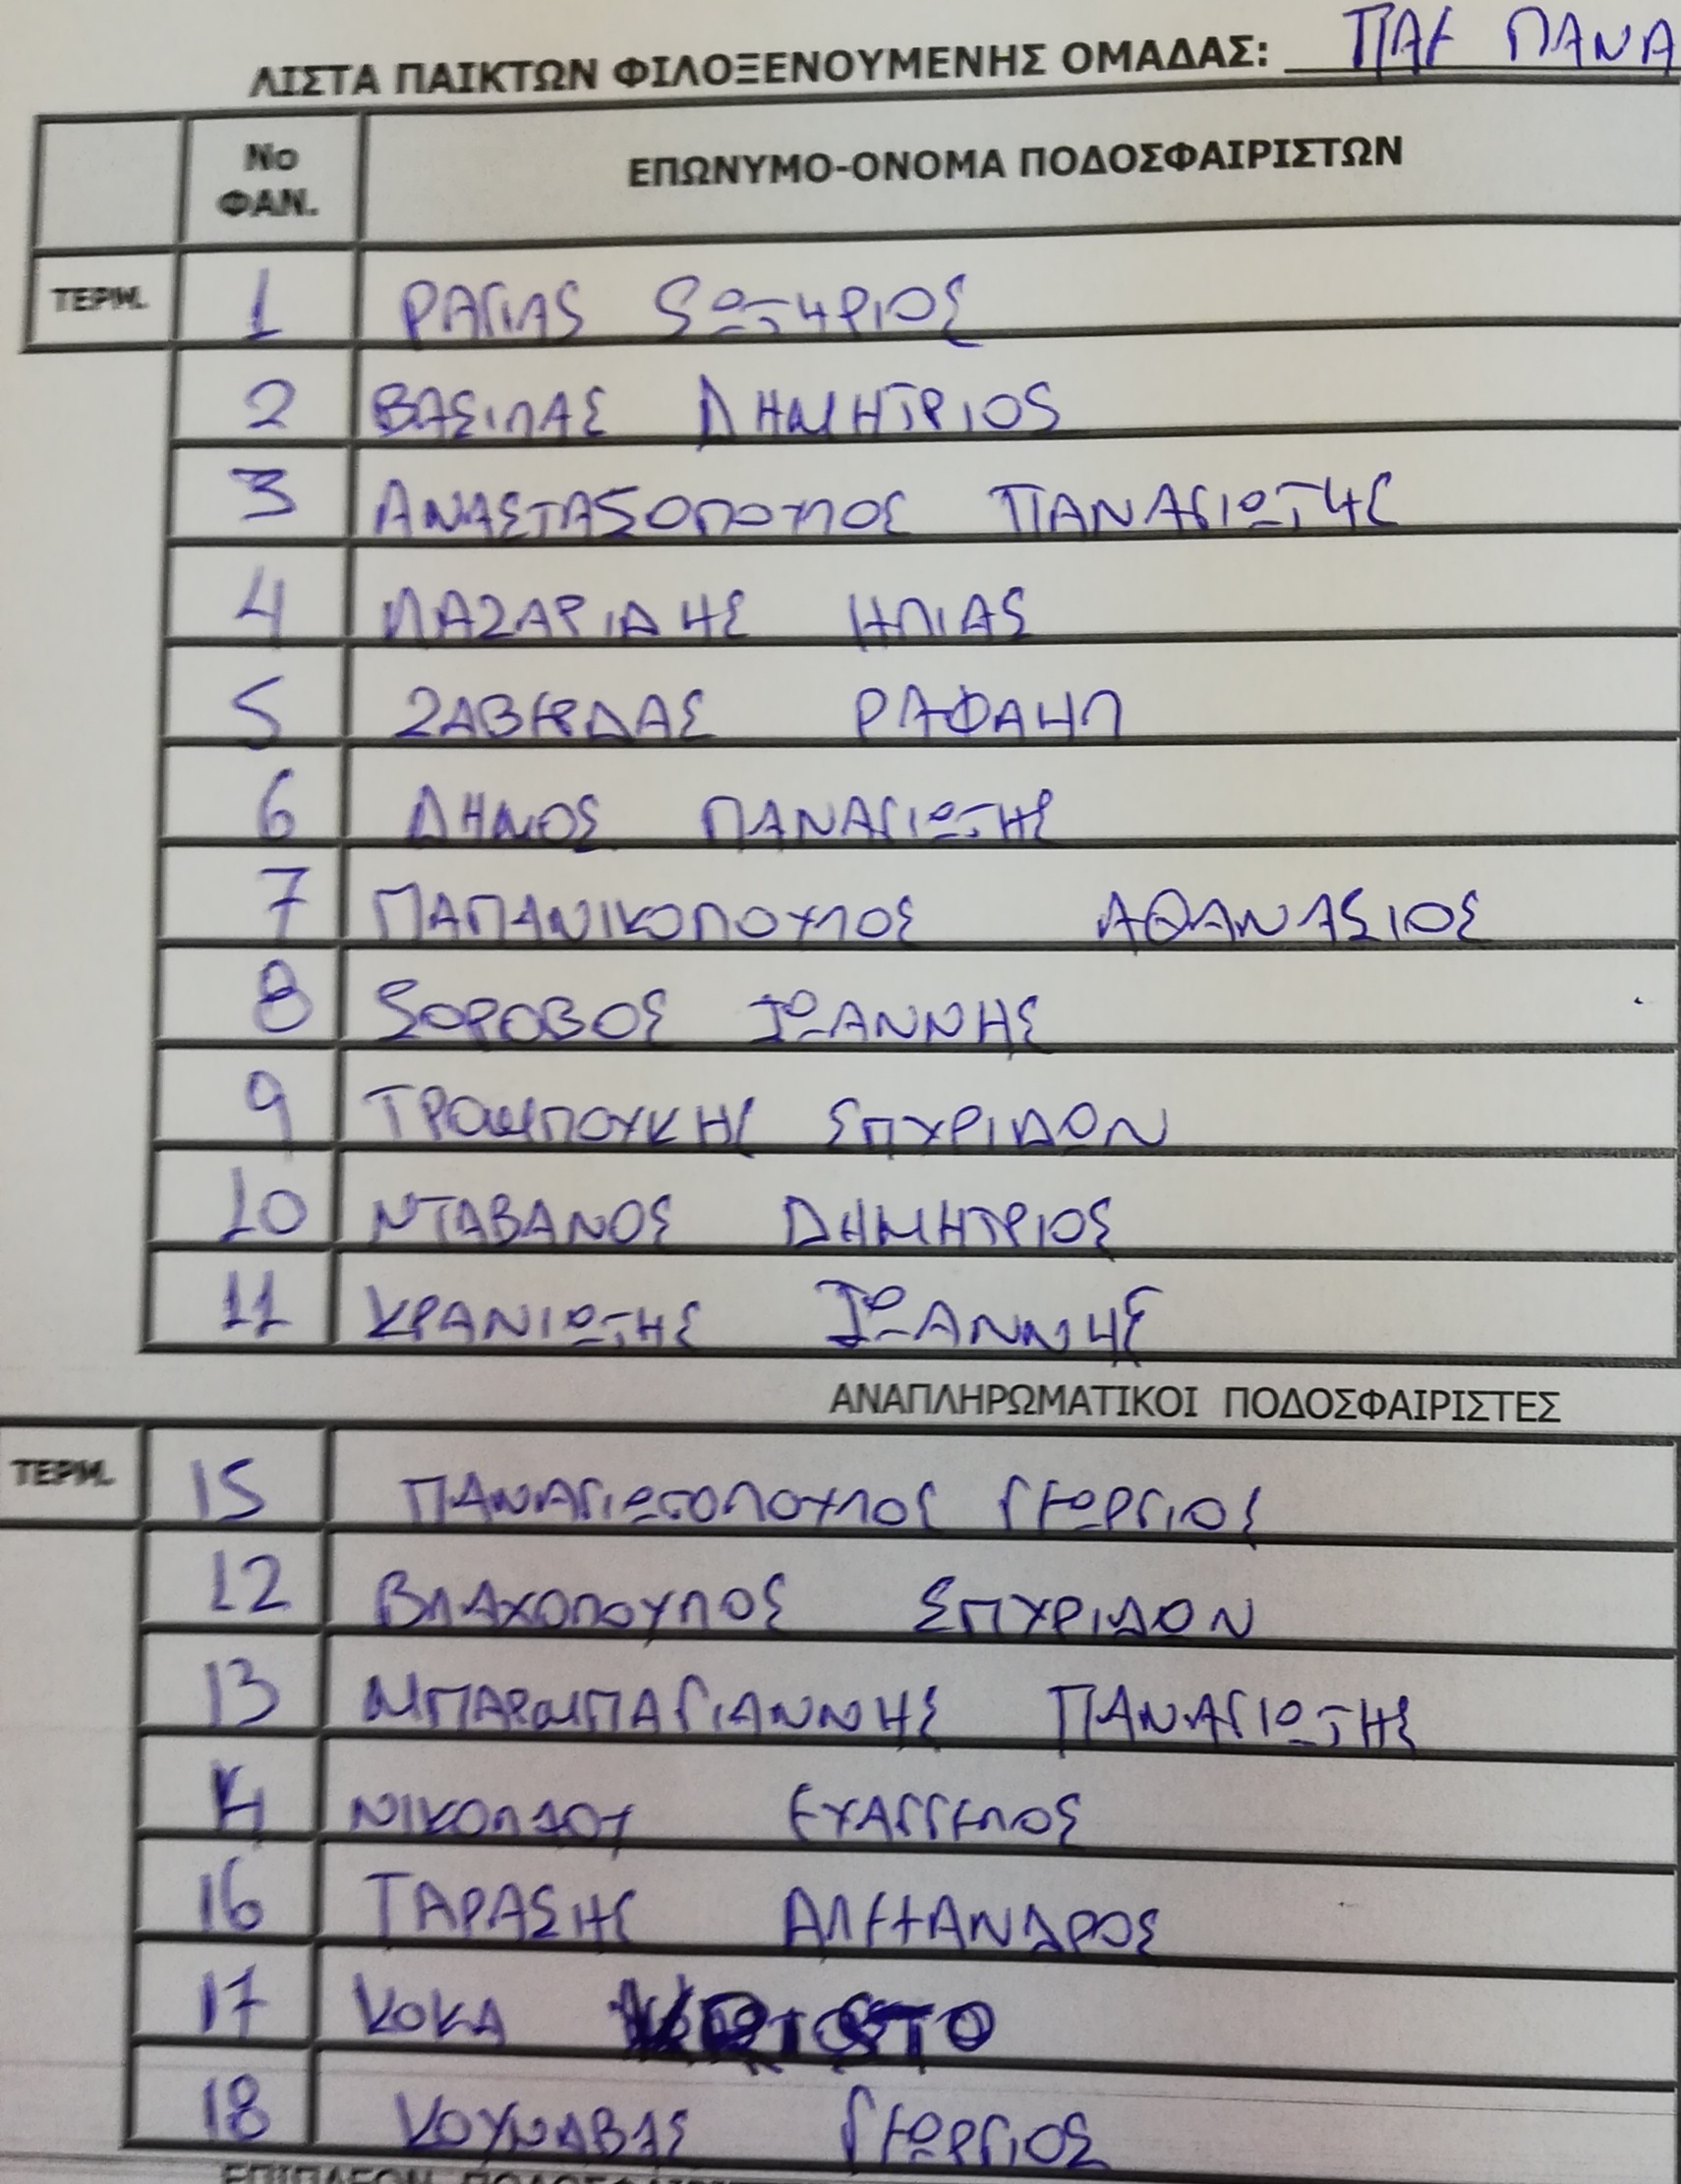 ΛΙΣΤΑ ΠΑΙΚΤΩΝ ΦΙΛΟΞΕΝΟΥΜΕΝΗΣ ΟΜΑΔΑΣ: ΠΑΕ ΠΑΝΑ
Νο ΦΑΝ. ΕΠΩΝΥΜΟ-ΟΝΟΜΑ ΠΟΔΟΣΦΑΙΡΙΣΤΩΝ
ΤΕΡΜ. 1 ΡΑΓΙΑΣ ΣΩΤΗΡΙΟΣ
2 ΒΑΣΙΛΑΣ ΔΗΜΗΤΡΙΟΣ
3 ΑΝΑΣΤΑΣΟΠΟΥΛΟΣ ΠΑΝΑΓΙΩΤΗΣ
4 ΛΑΖΑΡΙΔΗΣ ΗΛΙΑΣ
5 ΡΑΦΑΗΛ
6 ΔΗΜΟΣ ΠΑΝΑΓΙΩΤΗΣ
7 ΠΑΠΑΝΙΚΟΠΟΥΛΟΣ ΑΘΑΝΑΣΙΟΣ
8 ΣΟΡΟΒΟΣ ΙΩΑΝΝΗΣ
9 ΤΡΟΜΠΟΥΚΗΣ ΣΠΥΡΙΔΩΝ
10 ΝΤΑΒΑΝΟΣ ΔΗΜΗΤΡΙΟΣ
11 ΚΡΑΝΙΩΤΗΣ ΙΩΑΝΝΗΣ
ΑΝΑΠΛΗΡΩΜΑΤΙΚΟΙ ΠΟΔΟΣΦΑΙΡΙΣΤΕΣ
ΤΕΡΜ. 15 ΠΑΝΑΓΙΩΤΟΠΟΥΛΟΣ ΓΕΩΡΓΙΟΣ
12 ΒΛΑΧΟΠΟΥΛΟΣ ΣΠΥΡΙΔΩΝ
13 ΜΠΑΡΜΠΑΓΙΑΝΝΗΣ ΠΑΝΑΓΙΩΤΗΣ
14 ΝΙΚΟΛΑΟΥ ΕΥΑΓΓΕΛΟΣ
16 ΤΑΡΑΣΗΣ ΑΛΕΞΑΝΔΡΟΣ
17 ΚΟΚΑ
18 ΚΟΥΝΑΒΑΣ ΓΕΩΡΓΙΟΣ